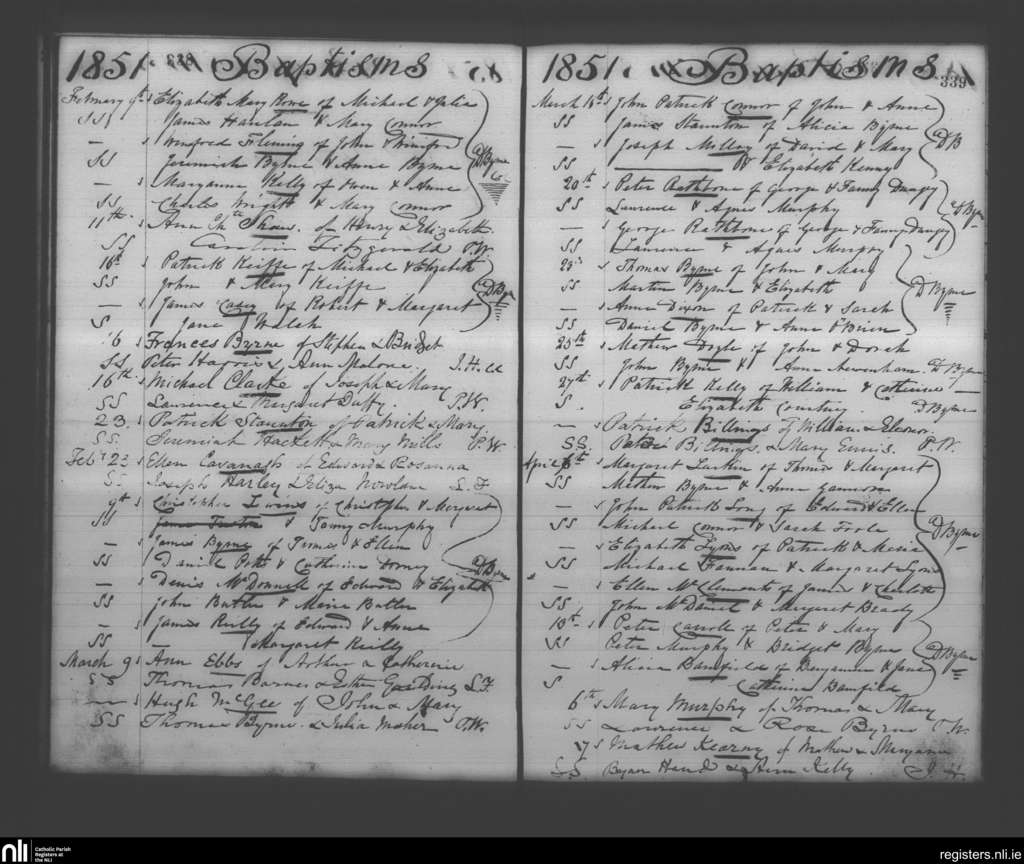 1851. Baptisms
February 9th s Elizabeth Mary Rowe of Michael & Julia
SS James Hanlan & Mary Connor
— s Winefred Fleming of John & Winefred
SS Jeremiah Byrne & Anne Byrne D Byrne
— s Maryanne Kelly of Owen & Anne
SS Charles Wright & Mary Connor
11th s Ann Shaw of Henry & Elizabeth
SS Caroline Fitzgerald P.W.
16th s Patrick Keiffe of Michael & Elizabeth
SS John & Mary Keiffe D Byrne
— s James Casey of Robert & Margaret
S Jane Walsh
16 s Frances Byrne of Stephen & Bridget
SS Peter & Ann Malone
16th s Michael Clarke of Joseph & Mary
SS Lawrence & Margaret Duffy P.W.
23 s Patrick Staunton of Patrick & Mary
SS Jeremiah Hackett & Mary Mills P.W.
Feby 23 s Ellen Cavanagh of Edward & Rosanna
SS Joseph Harley & Eliza Nowlane L.F.
9th s Christopher of Christopher & Margaret
SS & Jenny Murphy
— s James Byrne of James & Ellen
SS Daniel & Catherine D Byrne
— s Denis McDonnell of Edward & Elizabeth
SS John Butler & Maria Butler
— s James Reilly of Edward & Anne
SS — Margaret Reilly
March 9 s Ann Ebbs of Arthur & Catherine
SS Thomas Barnes & Esther L.F.
— s Hugh McGee of John & Mary
SS Thomas Byrne & Julia Maher P.W.
1851. Baptisms 339
March 16th s John Patrick Connor of John & Anne
SS James Staunton & Alicia Byrne
— Joseph Molloy of David & Mary D B
SS & Elizabeth Kenny
20th s Peter Rathbone of George & Fanny
SS Laurence & Agnes Murphy D Byrne
— George Rathbone of George & Fanny
SS Laurence & Agnes Murphy
23 s Thomas Byrne of John & Mary
SS Martin Byrne & Elizabeth D Byrne
— Anne Dixon of Patrick & Sarah
SS Daniel Byrne & Anne O'Brien
25th s Mathew Doyle of John & Dorah
SS John Byrne & Anne D Byrne
27th s Patrick Kelly of William & Catherine
S. Elizabeth Courtney D Byrne
— Patrick Billings of William & Eleanor
SS. Billings & Mary Ennis. P.W.
April 6th s Margaret Larkin of Thomas & Margaret
SS Mathew Byrne & Anne Gannon
— s John Patrick Long of Edward & Ellen
SS Michael Connor & Sarah Toole D Byrne
— s Elizabeth Lyons of Patrick & Maria
SS Michael & Margaret Lyons
— s Ellen McClements of James & Charlotte
SS John McDaniel & Margaret Brady
10th s Peter Carroll of Peter & Mary
SS Peter Murphy & Bridget Byrne D Byrne
— s Alicia Bamfield of Benjamin & Jane
S Catherine Bamfield
6th s Mary Murphy of Thomas & Mary
SS Lawrence & Rose Byrne P.W.
7 s Mathew Kearny of Mathew & Maryanne
SS Hand & Ann Kelly J.H.
nli Catholic Parish
Registers at
the NLI
registers.nli.ie